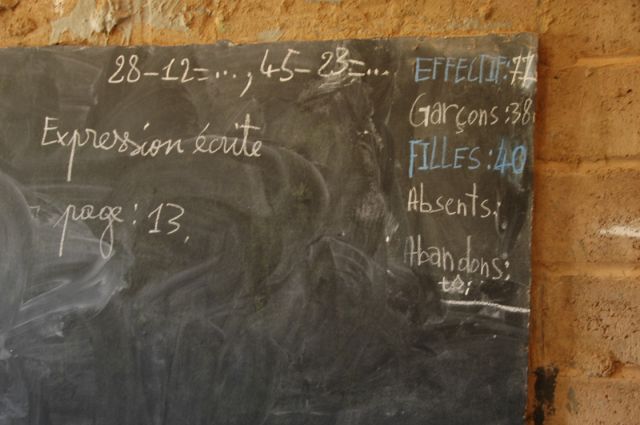 28-12=..., 45-23=...
Expression écrite
page: 13.
EFFECTIF: 71
Garçons: 38
FILLES: 40
Absents:
Abandons: